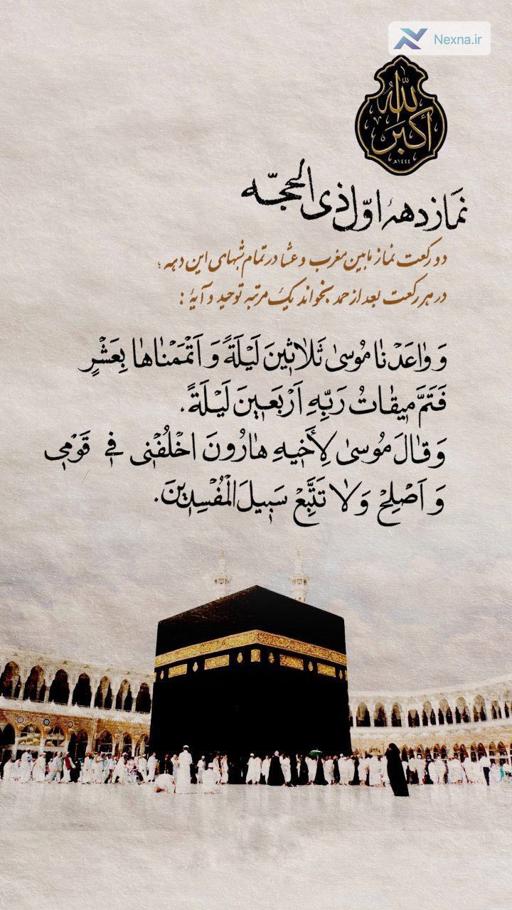 Nexna.ir
الله
أكبر
١٤٤٤هـ
نماز دههٔ اوّل ذی‌الحجّه
دو رکعت نماز مابین مغرب و عشا در تمام شبهای این دهه ؛
در هر رکعت بعد از حمد بخواند یک مرتبه توحید و آیهٔ :
وَ وٰاعَدْنٰا مُوسىٰ ثَلاٰثِينَ لَيْلَةً وَ اَتْمَمْنٰاهٰا بِعَشْرٍ
فَتَمَّ مِيقٰاتُ رَبِّهِ اَرْبَعِينَ لَيْلَةً.
وَ قٰالَ مُوسىٰ لِأَخِيهِ هٰارُونَ اخْلُفْنِى فِى قَوْمِى
وَ اَصْلِحْ وَ لاٰ تَتَّبِعْ سَبِيلَ الْمُفْسِدِينَ.